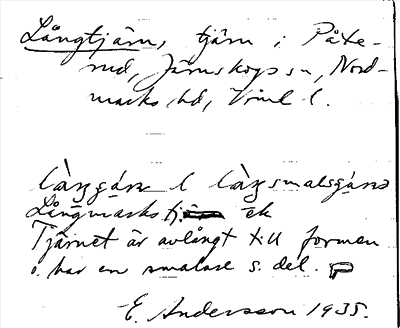 Långtjärn, tjärn i Påte-
rud, Järnskogs sn, Nord-
marks hd, Vrml l.
Långmarkstj. ek
Tjärnet är avlångt till formen
o. har en smalare s. del.
E. Andersson 1935.